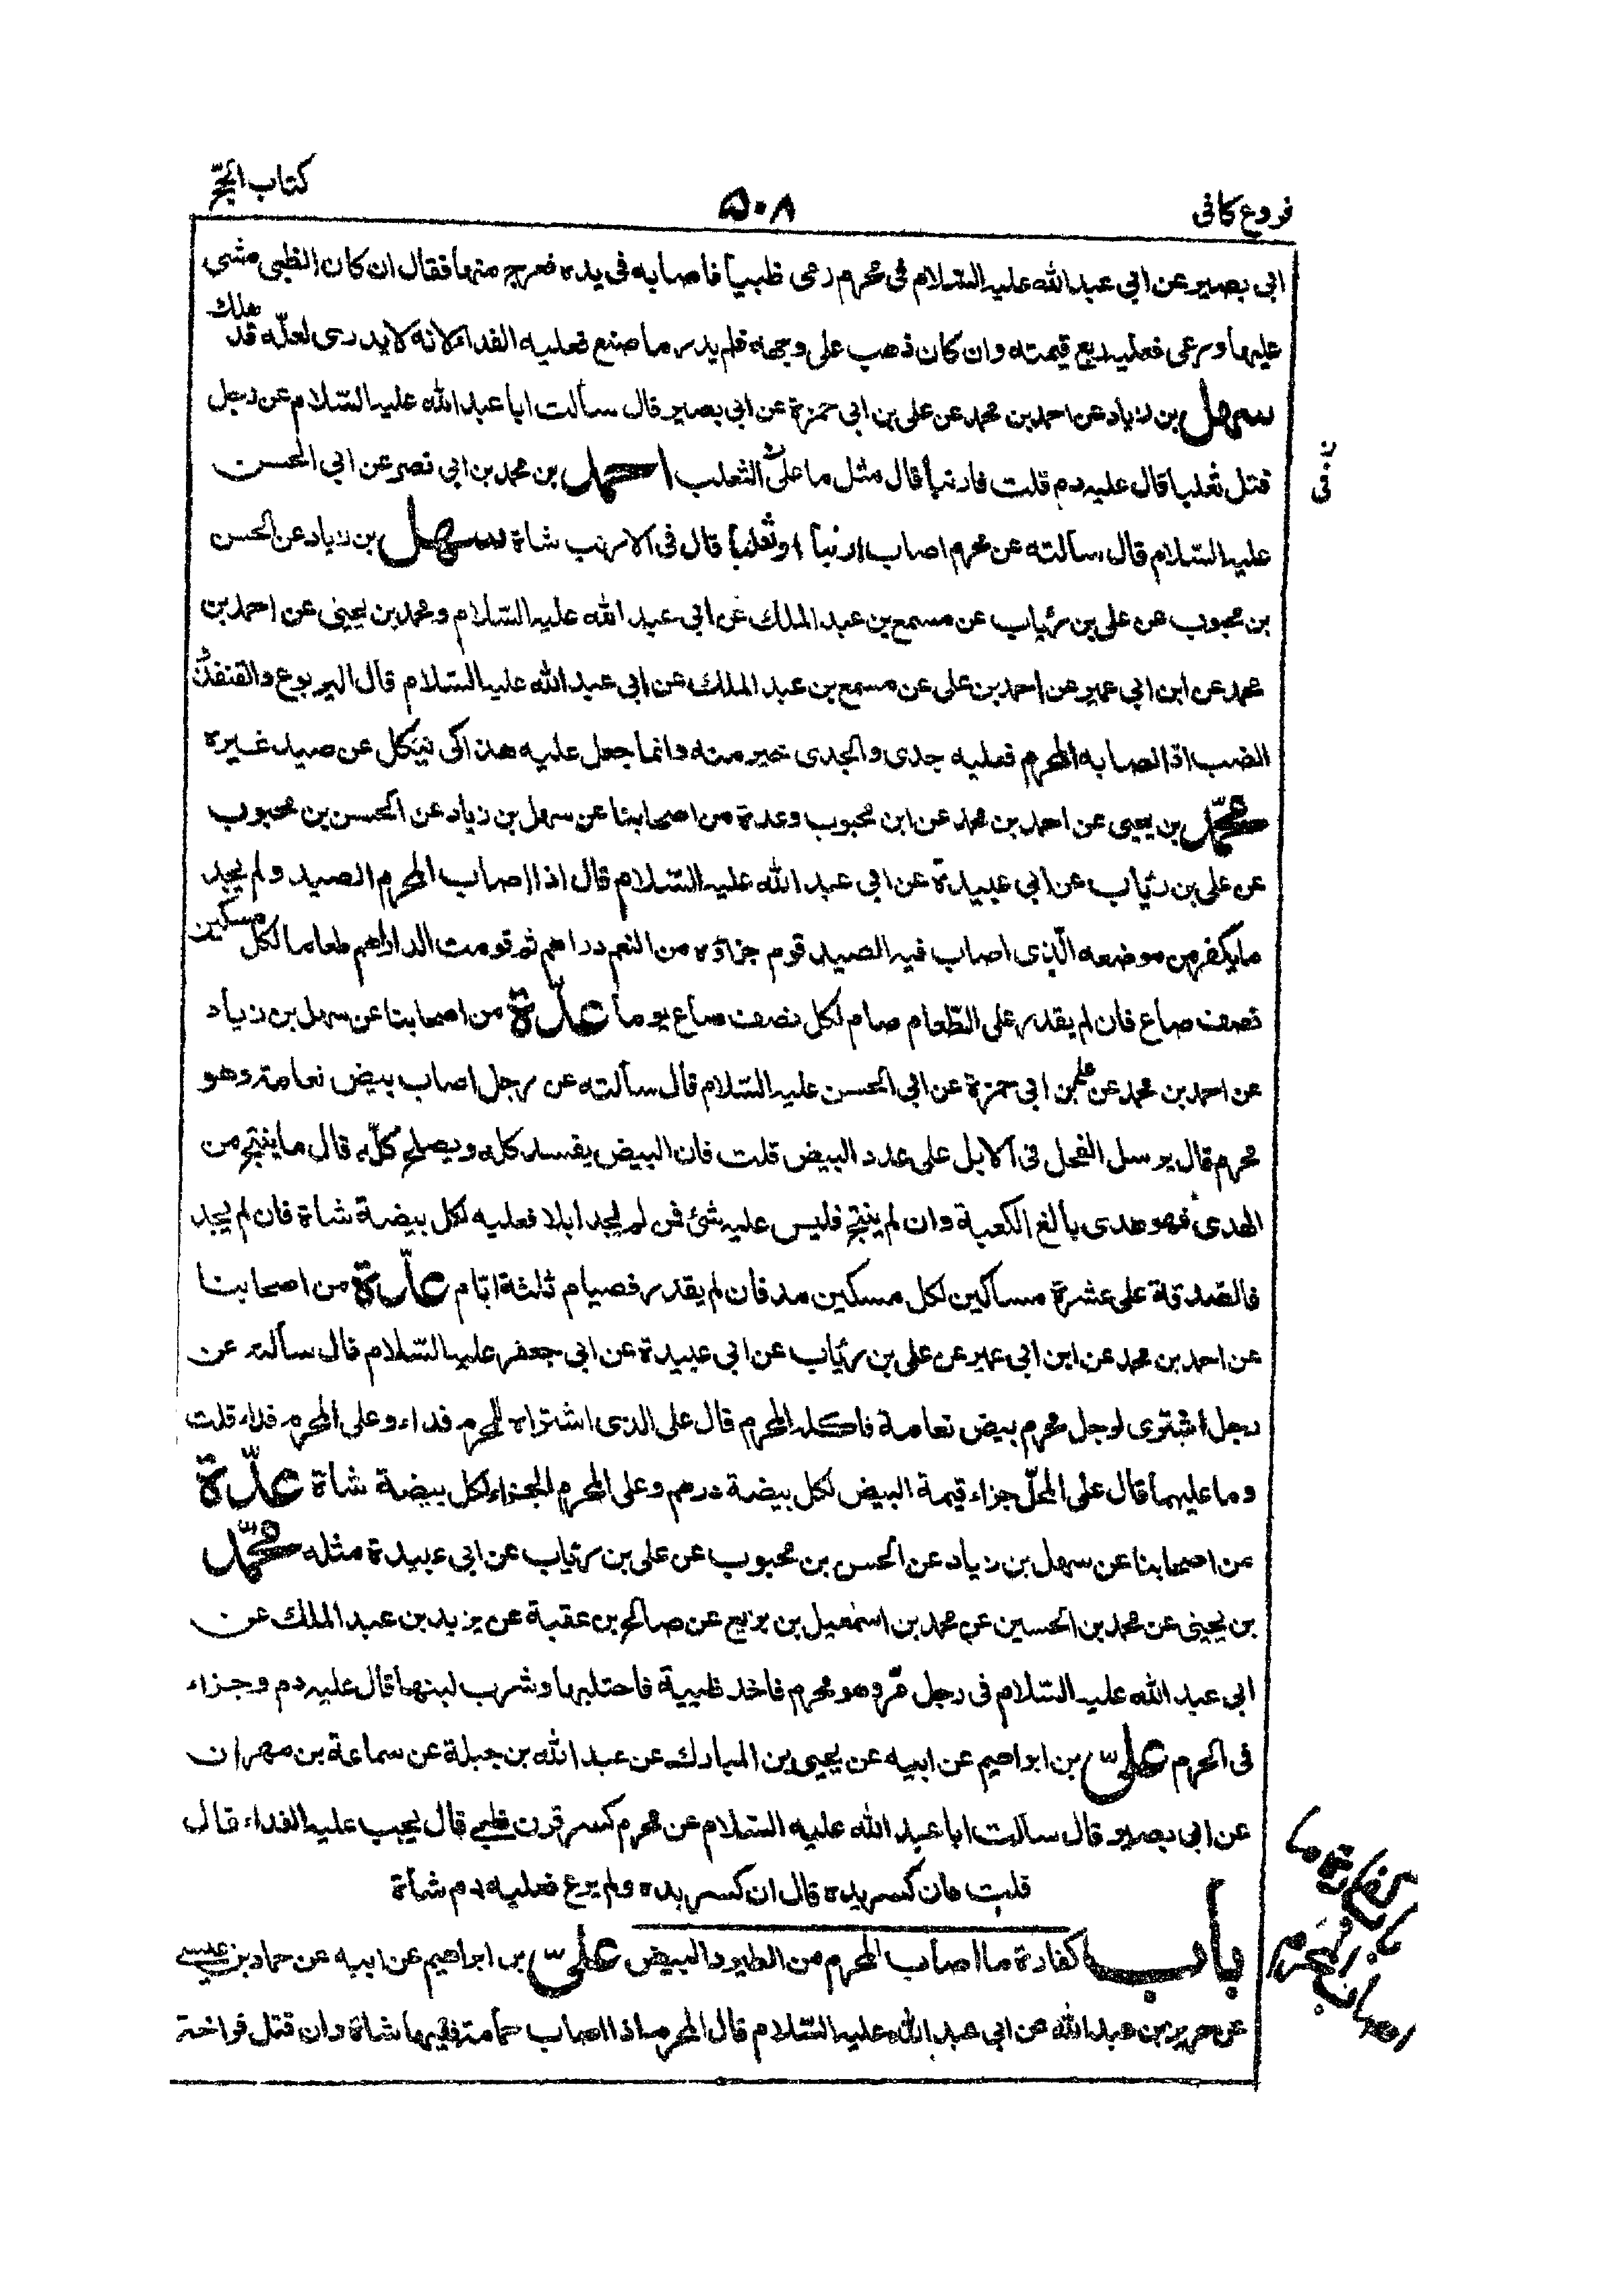 كتاب الحجّ
۵۰۸
فروع كافى
ابى بصير عن ابى عبد الله عليه السّلام فى محرم رمى ظبيا فاصابه فى يده فعرج منها فقال ان كان الظبى مشى
عليها ورعى فعليه ربع قيمته وان كان ذهب على وجهه فلم يدر ما صنع فعليه الفداء لانه لا يدرى لعلّه قد هلك
سهل بن زياد عن احمد بن محمد عن على بن ابى حمزة عن ابى بصير قال سألت ابا عبد الله عليه السّلام عن رجل
قتل ثعلبا قال عليه دم قلت فارنبا قال مثل ما على الثعلب احمد بن محمد بن ابى نصر عن ابى الحسن
عليه السّلام قال سألته عن محرم اصاب ارنبا او ثعلبا قال فى الارنب شاة سهل بن زياد عن الحسن
بن محبوب عن على بن رئاب عن مسمع بن عبد الملك عن ابى عبد الله عليه السّلام ومحمد بن يحيى عن احمد بن
محمد عن ابن ابى عمير عن احمد بن على عن مسمع بن عبد الملك عن ابى عبد الله عليه السّلام قال اليربوع والقنفذ
الضب اذا اصابه المحرم فعليه جدى والجدى خير منه وانما جعل عليه هذا كى ينكل عن صيد غيره
محمّد بن يحيى عن احمد بن محمد عن ابن محبوب وعدة من اصحابنا عن سهل بن زياد عن الحسن بن محبوب
عن على بن رئاب عن ابى عبيدة عن ابى عبد الله عليه السّلام قال اذا اصاب المحرم الصيد ولم يجد
ما يكفر من موضعه الّذى اصاب فيه الصيد قوم جزاؤه من النعم دراهم ثم قومت الدراهم طعاما لكل مسكين
نصف صاع فان لم يقدر على الطّعام صام لكل نصف صاع يوما عدّة من اصحابنا عن سهل بن زياد
عن احمد بن محمد عن على بن ابى حمزة عن ابى الحسن عليه السّلام قال سألته عن رجل اصاب بيض نعامة وهو
محرم قال يرسل الفحل فى الابل على عدد البيض قلت فان البيض يفسد كله ويصلح كلّه قال ما ينتج من
الهدى فهو هدى بالغ الكعبة وان لم ينتج فليس عليه شئ فمن لم يجد ابلا فعليه لكل بيضة شاة فان لم يجد
فالصّدقة على عشرة مساكين لكل مسكين مد فان لم يقدر فصيام ثلثة ايّام عدّة من اصحابنا
عن احمد بن محمد عن ابن ابى عمير عن على بن رئاب عن ابى عبيدة عن ابى جعفر عليه السّلام قال سألته عن
رجل اشترى لرجل محرم بيض نعامة فاكله المحرم قال على الذى اشتراه للمحرم فداء وعلى المحرم فداء قلت
وما عليهما قال على المحلّ جزاء قيمة البيض لكل بيضة درهم وعلى المحرم الجزاء لكل بيضة شاة عدّة
من اصحابنا عن سهل بن زياد عن الحسن بن محبوب عن على بن رئاب عن ابى عبيدة مثله محمّد
بن يحيى عن محمد بن الحسين عن محمد بن اسمعيل بن بزيع عن صالح بن عقبة عن يزيد بن عبد الملك عن
ابى عبد الله عليه السّلام فى رجل مرّ وهو محرم فاخذ ظبية فاحتلبها وشرب لبنها قال عليه دم وجزاء
فى الحرم علىّ بن ابراهيم عن ابيه عن يحيى بن المبارك عن عبد الله بن جبلة عن سماعة بن مهران
عن ابى بصير قال سألت ابا عبد الله عليه السّلام عن محرم كسر قرن ظبى قال يجب عليه الفداء قال
قلت فان كسر يده قال ان كسر يده ولم يرع فعليه دم شاة
باب كفارة ما اصاب المحرم من الطير والبيض علىّ بن ابراهيم عن ابيه عن حماد بن عيسى
عن حريز بن عبد الله عن ابى عبد الله عليه السّلام قال المحرم اذا اصاب حمامة ففيها شاة وان قتل فراخه
باب كفارة ما
اصاب المحرم